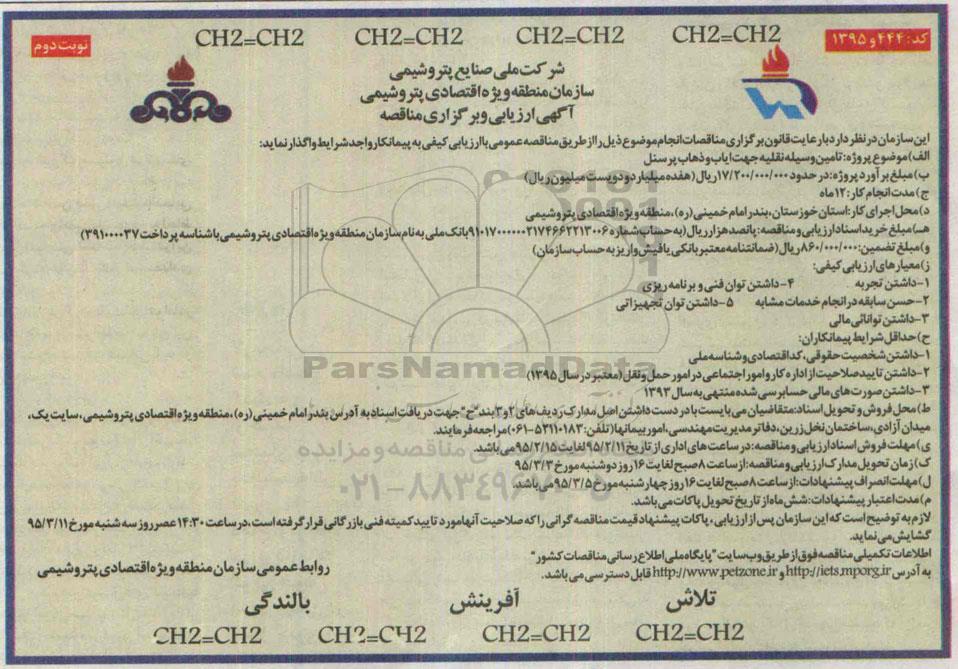 CH2=CH2 CH2=CH2 CH2=CH2 CH2=CH2
کد: ۴۴۴ و ۱۳۹۵
نوبت دوم
شرکت ملی صنایع پتروشیمی
سازمان منطقه ویژه اقتصادی پتروشیمی
آگهی ارزیابی و برگزاری مناقصه
این سازمان در نظر دارد با رعایت قانون برگزاری مناقصات انجام موضوع ذیل را از طریق مناقصه عمومی با ارزیابی کیفی به پیمانکار واجد شرایط واگذار نماید:
الف) موضوع پروژه: تامین وسیله نقلیه جهت ایاب و ذهاب پرسنل
ب) مبلغ برآورد پروژه: در حدود ۱۷/۲۰۰/۰۰۰/۰۰۰ ریال (هفده میلیارد و دویست میلیون ریال)
ج) مدت انجام کار: ۱۲ ماه
د) محل اجرای کار: استان خوزستان، بندر امام خمینی (ره)، منطقه ویژه اقتصادی پتروشیمی
هـ) مبلغ خرید اسناد ارزیابی و مناقصه: پانصد هزار ریال (به حساب شماره ۲۱۷۴۶۶۲۲۱۳۰۰۶ بانک ملی به نام سازمان منطقه ویژه اقتصادی پتروشیمی با شناسه پرداخت
و) مبلغ تضمین: ۸۶۰/۰۰۰/۰۰۰ ریال (ضمانتنامه معتبر بانکی یا فیش واریز به حساب سازمان)
ز) معیارهای ارزیابی کیفی:
۱-داشتن تجربه ۴-داشتن توان فنی و برنامه ریزی
۲-حسن سابقه در انجام خدمات مشابه ۵-داشتن توان تجهیزاتی
۳-داشتن توانائی مالی
ح) حداقل شرایط پیمانکاران:
۱-داشتن شخصیت حقوقی، کد اقتصادی و شناسه ملی
۲-داشتن تایید صلاحیت از اداره کار و امور اجتماعی در امور حمل و نقل (معتبر در سال ۱۳۹۵)
۳-داشتن صورت های مالی حسابرسی شده منتهی به سال ۱۳۹۳
ط) محل فروش و تحویل اسناد: متقاضیان می بایست با در دست داشتن اصل مدارک ردیف های ۲ و ۳ بند "ح" جهت دریافت اسناد به آدرس بندر امام خمینی (ره)، منطقه ویژه اقتصادی پتروشیمی، سایت یک،
میدان آزادی، ساختمان نخل زرین، دفاتر مدیریت مهندسی، امور پیمانها (تلفن: ۵۲۱۱۰۱۸۳-۰۶۱) مراجعه فرمایند.
ی) مهلت فروش اسناد ارزیابی و مناقصه: در ساعت های اداری از تاریخ ۹۵/۲/۱۱ لغایت ۹۵/۲/۱۵ می باشد.
ک) زمان تحویل مدارک ارزیابی و مناقصه: از ساعت ۸ صبح لغایت ۱۶ روز دوشنبه مورخ ۹۵/۳/۳
ل) مهلت انصراف پیشنهادات: از ساعت ۸ صبح لغایت ۱۶ روز چهارشنبه مورخ ۹۵/۳/۵ می باشد.
م) مدت اعتبار پیشنهادات: شش ماه از تاریخ تحویل پاکات می باشد.
لازم به توضیح است که این سازمان پس از ارزیابی، پاکات پیشنهاد قیمت مناقصه گرانی را که صلاحیت آنها مورد تایید کمیته فنی بازرگانی قرار گرفته است، در ساعت ۱۴:۳۰ عصر روز سه شنبه مورخ ۹۵/۳/۱۱
گشایش می نماید.
اطلاعات تکمیلی مناقصه فوق از طریق وب سایت "پایگاه ملی اطلاع رسانی مناقصات کشور"
به آدرس http://iets.mporg.ir و http://www.petzone.ir قابل دسترسی می باشد.
روابط عمومی سازمان منطقه ویژه اقتصادی پتروشیمی
تلاش آفرینش بالندگی
CH2=CH2 CH2=CH2 CH2=CH2 CH2=CH2
ParsNamadData
۰۲۱-۸۸۳۴۹۶۷۰-۵